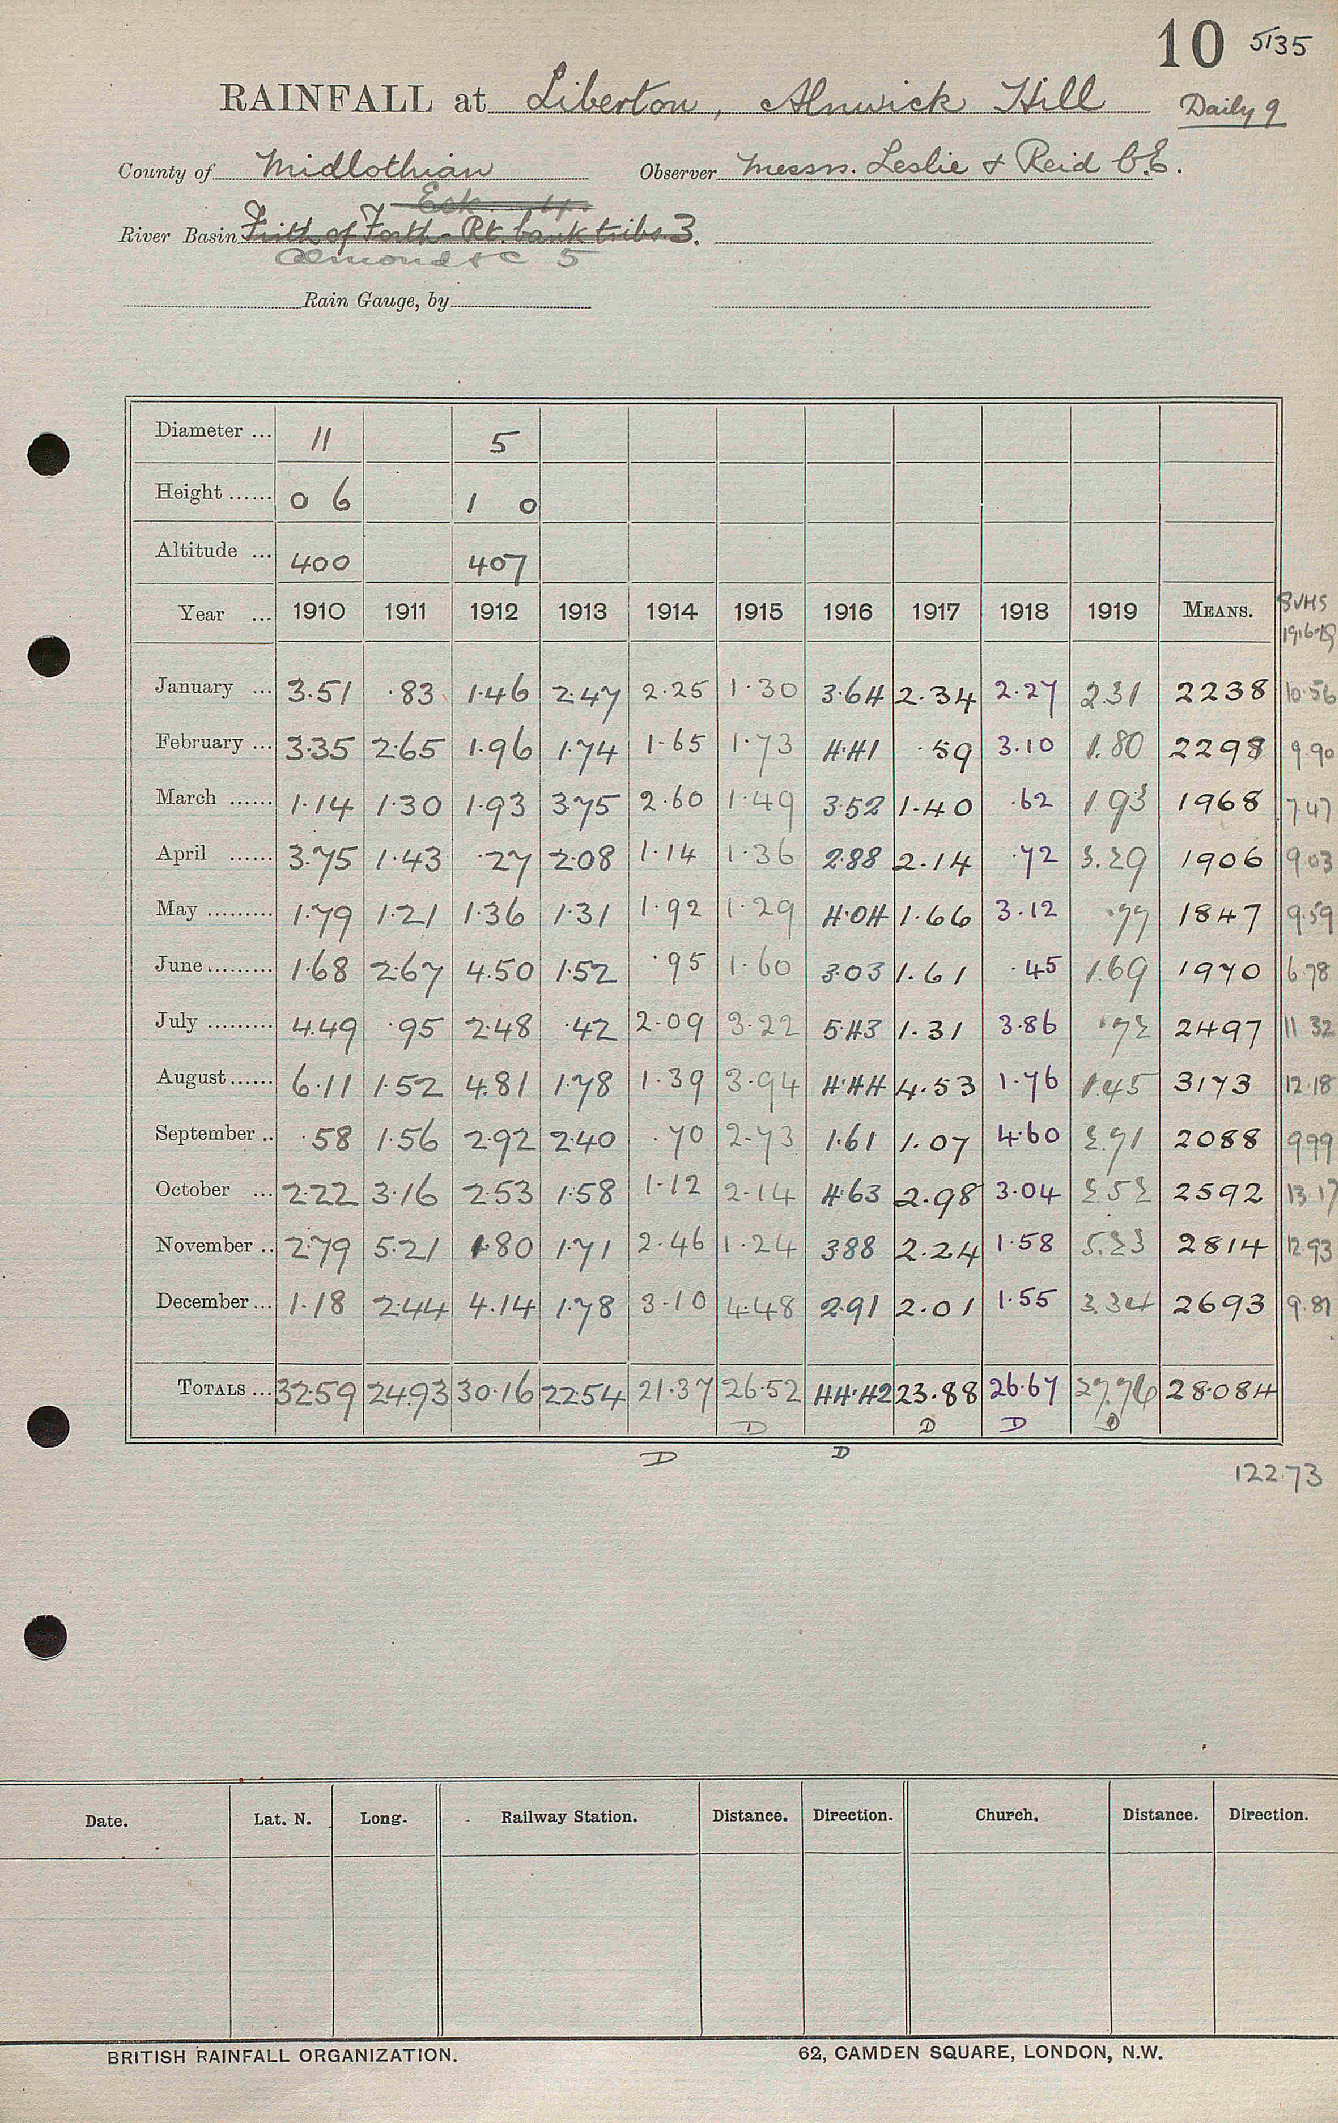 10 5135
RAINFALL at Liberton, Alnwick Hill Daily 9
County of Midlothian Observer Messrs. Leslie & Reid C.E.
Esk
River Basin Frith of Forth - Rt. bank tribs. 3.
Almond &c 5
Rain Gauge, by
Diameter ... 11 5
Height ...... 0 6 1 0
Altitude ... 400 407
Year ... 1910 1911 1912 1913 1914 1915 1916 1917 1918 1919 MEANS.
1916-19
January ... 3.51 .83 1.46 2.47 2.25 1.30 3.64 2.34 2.27 2.31 2238 10.56
February ... 3.35 2.65 1.96 1.74 1.65 1.73 4.41 .59 3.10 1.80 2298 9.90
March ...... 1.14 1.30 1.93 3.75 2.60 1.49 3.52 1.40 .62 1.93 1968 7.47
April ...... 3.75 1.43 .27 2.08 1.14 1.36 2.88 2.14 .72 3.29 1906 9.03
May ......... 1.79 1.21 1.36 1.31 1.92 1.29 4.04 1.66 3.12 .77 1847 9.59
June ......... 1.68 2.67 4.50 1.52 .95 1.60 3.03 1.61 .45 1.69 1970 6.78
July ......... 4.49 .95 2.48 .42 2.09 3.22 5.43 1.31 3.86 .72 2497 11.32
August ...... 6.11 1.52 4.81 1.78 1.39 3.94 4.44 4.53 1.76 1.45 3173 12.18
September .. .58 1.56 2.92 2.40 .70 2.73 1.61 1.07 4.60 2.71 2088 9.99
October ... 2.22 3.16 2.53 1.58 1.12 2.14 4.63 2.98 3.04 2.52 2592 13.17
November .. 2.79 5.21 1.80 1.71 2.46 1.24 3.88 2.24 1.58 5.23 2814 12.93
December ... 1.18 2.44 4.14 1.78 3.10 4.48 2.91 2.01 1.55 3.34 2693 9.81
TOTALS ... 32.59 24.93 30.16 22.54 21.37 26.52 44.42 23.88 26.67 27.76 28.084
D D D D
D D
122.73
Date. Lat. N. Long. Railway Station. Distance. Direction. Church. Distance. Direction.
BRITISH RAINFALL ORGANIZATION. 62, CAMDEN SQUARE, LONDON, N.W.